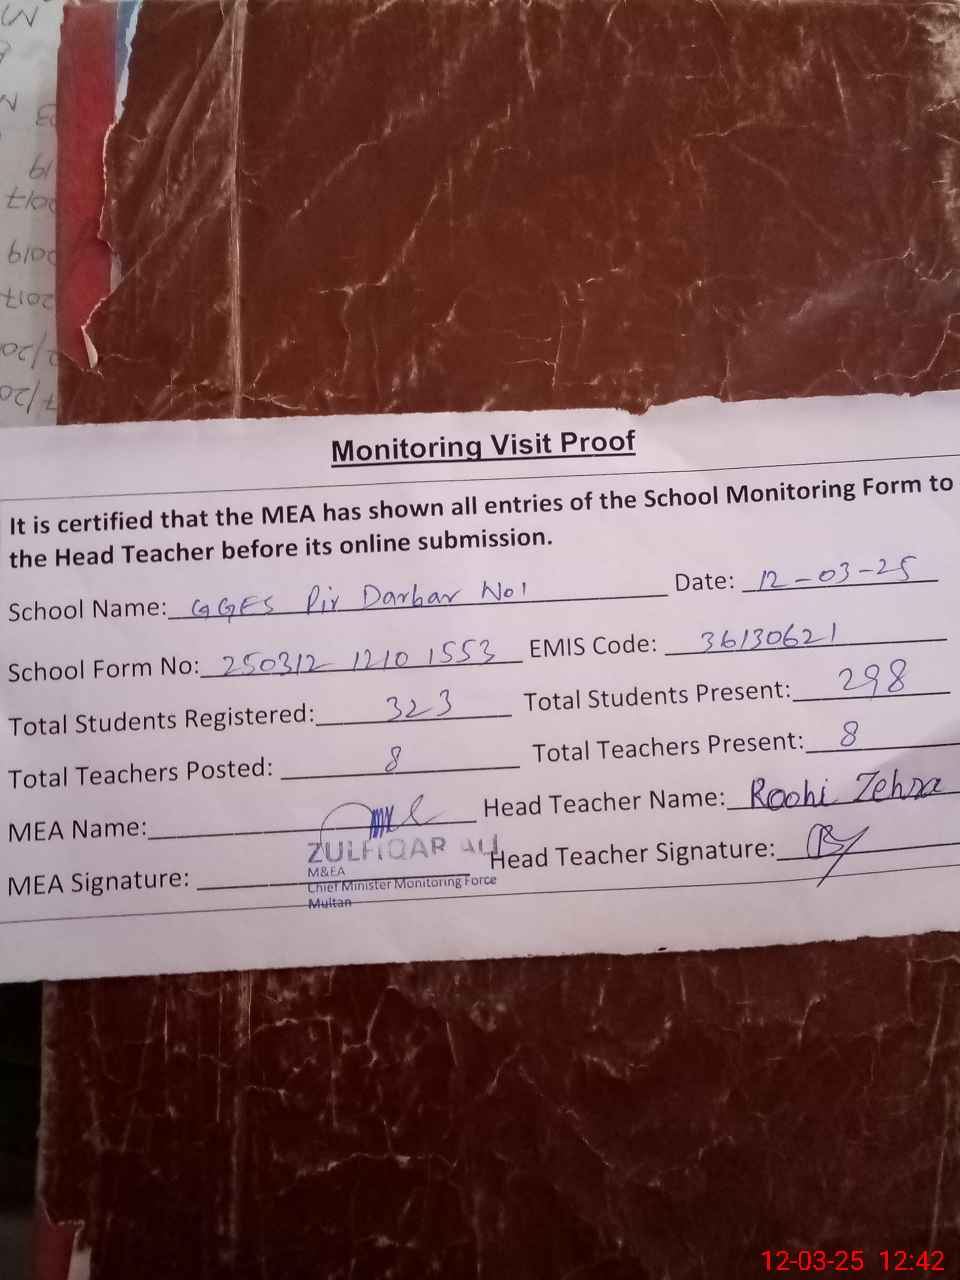 Monitoring Visit Proof
It is certified that the MEA has shown all entries of the School Monitoring Form to
the Head Teacher before its online submission.
School Name: GGES Pir Darbar No1 Date: 12-03-25
School Form No: 250312 1210 1553 EMIS Code: 36130621
Total Students Registered: 323 Total Students Present: 298
Total Teachers Posted: 8 Total Teachers Present: 8
MEA Name: Head Teacher Name: Roohi Zehra
ZULFIQAR ALI
MEA Signature: Head Teacher Signature:
M&EA
Chief Minister Monitoring Force
Multan
12-03-25 12:42